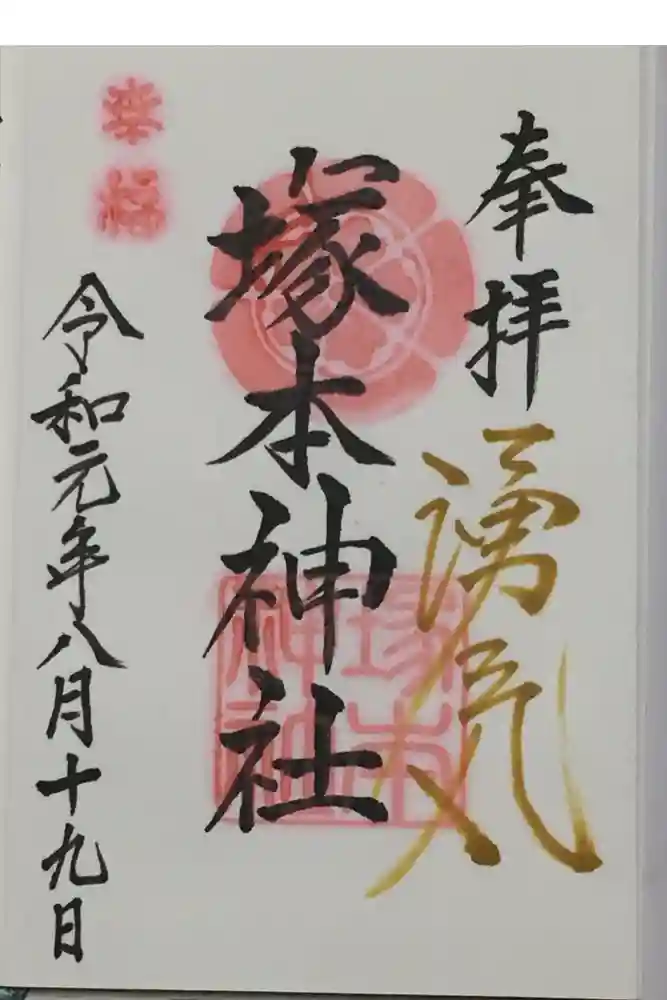 奉拝
湧気
塚本神社
塚本神社
令和元年八月十九日